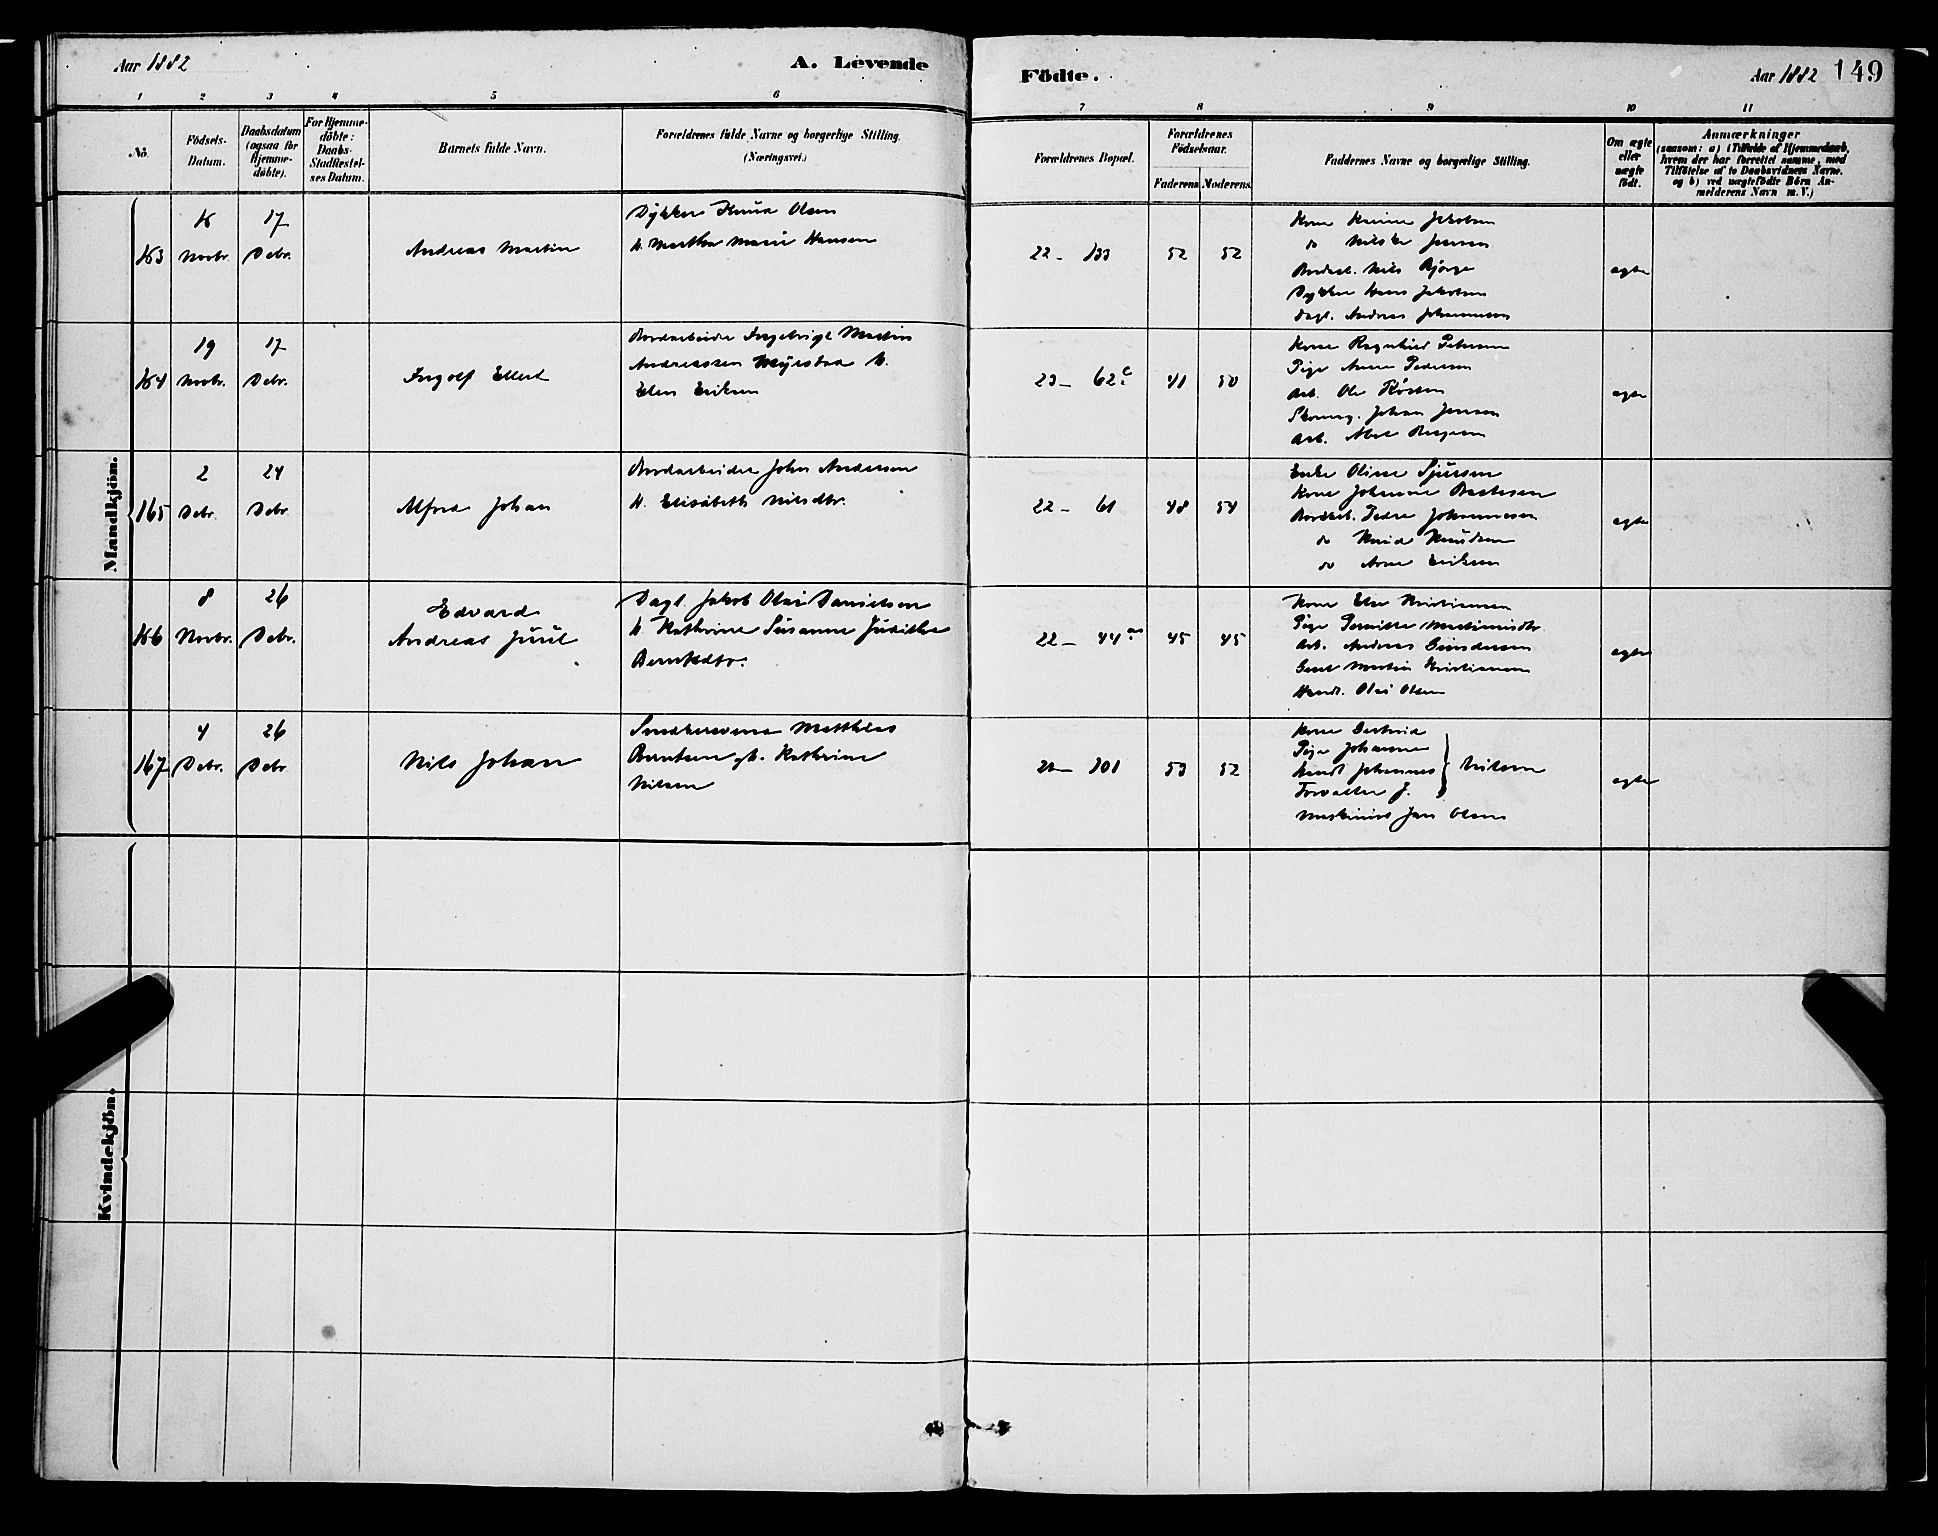 Aar 1882
A. Levende
Födte.
Aar 1882 149
1 2 3 4 5 6 7 8 9 10 11
No.
Födsels-
Datum.
Daabsdatum
(ogsaa for
Hjemme-
döbte).
For Hjemme-
döbte:
Daabs-
Stadfæstel-
ses Datum.
Barnets fulde Navn.
Forældrenes fulde Navne og borgerlige Stilling.
(Næringsvei.)
Forældrenes Bopæl.
Forældrenes
Födselsaar.
Faderens. Moderens.
Faddernes Navne og borgerlige Stilling.
Om ægte
eller
uægte
födt.
Anmærkninger
(saasom: a) Tilfælde af Hjemmedaab,
hvem der har forrettet samme, med
Tilföielse af to Daabsvidners Navne.
og b) ved uægtefödte Börn An-
melderens Navn m. V.)
Mandkjön.
163
16
Novbr.
17
Debr.
Andreas Martin
Dykker Knud Olsen
h. Martha Marie Hansen
22 - 133
52
52
Kone Karine Jakobsen
do Nilske Jensen
Nils Bjørge
Dykker Hans Jakobsen
Dagl. Andreas Johannesen
ægte
164
19
Novbr.
17
Debr.
Ingolf Ellert
Bordarbeider Ingebrigt Martin
Andreassen Myrstra h.
Elen Eriksen
23 - 62 c
41
50
Kone Ragnhild Petersen
Pige Anne Pedersen
Arb. Ole
Skomag. Johan Jensen
Arb.
ægte
165
2
Debr.
24
Debr.
Alfred Johan
Bordarbeider John Andersen
h. Elisabeth Nilsdtr.
22 - 61
48
54
Enke Oline Sjursen
Kone Johanne
Peder Johannesen
do Knud Knudsen
do Arne Eriksen
ægte
166
8
Novbr.
26
Debr.
Edvard
Andreas Juul
Dagl. Jakob Olai Danielsen
h. Kathrine Susanne Judithe
Berntsdtr.
22 - 44
45
45
Kone Else Kristiansen
Pige Pernille
Arb. Andreas Gundersen
Martin Kristiansen
Handl. Olai Olsen
ægte
167
4
Debr.
26
Debr.
Nils Johan
Snedkersvend Matthias
Berntsen og h. Kathrine
Nilsen
101
53
52
Kone
Pige Johanne
Handl. Johannes } Nilsen
Forvalter J.
Maskinist Jan Olsen
ægte
Kvindekjön.